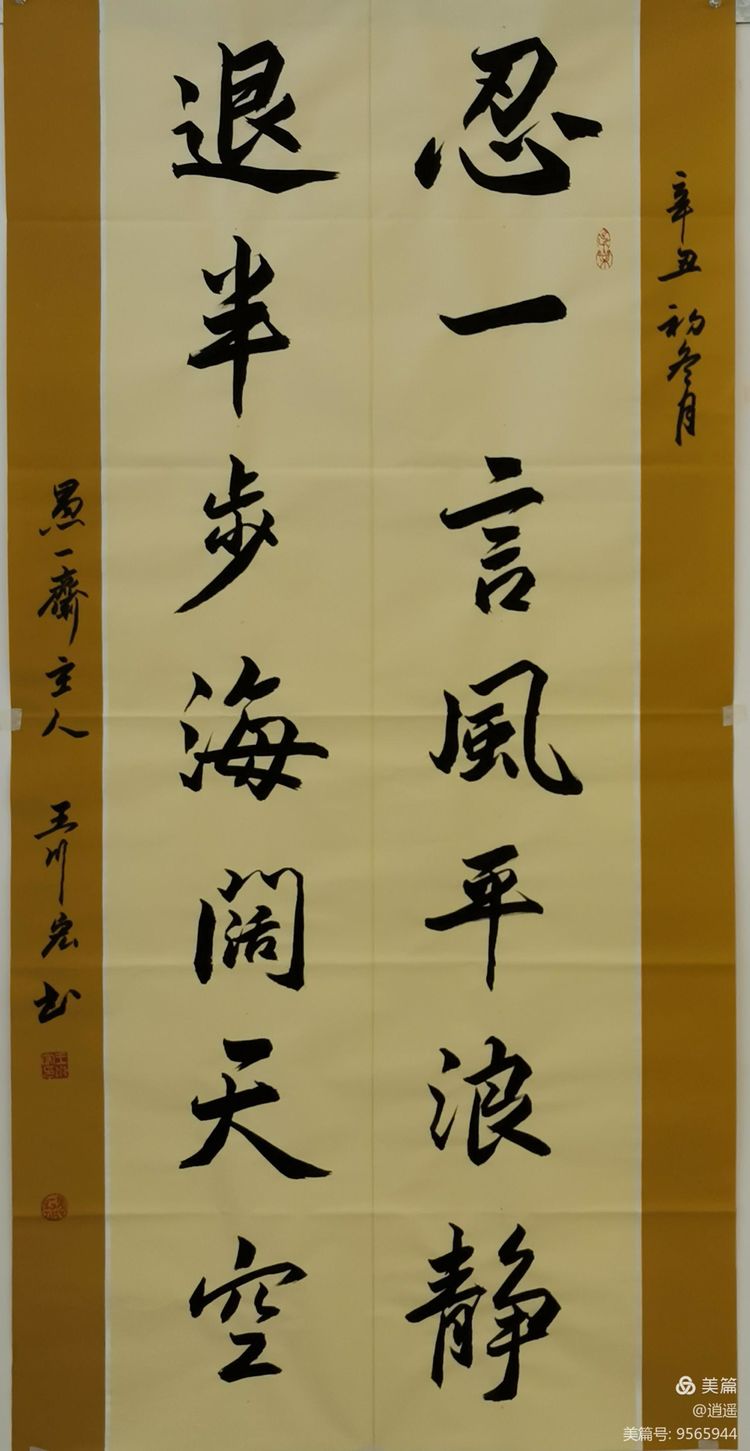 辛丑初冬月
忍一言風平浪静
退半步海阔天空
愚一齋主人 王川宏书
美篇
@逍遥
美篇号: 9565944